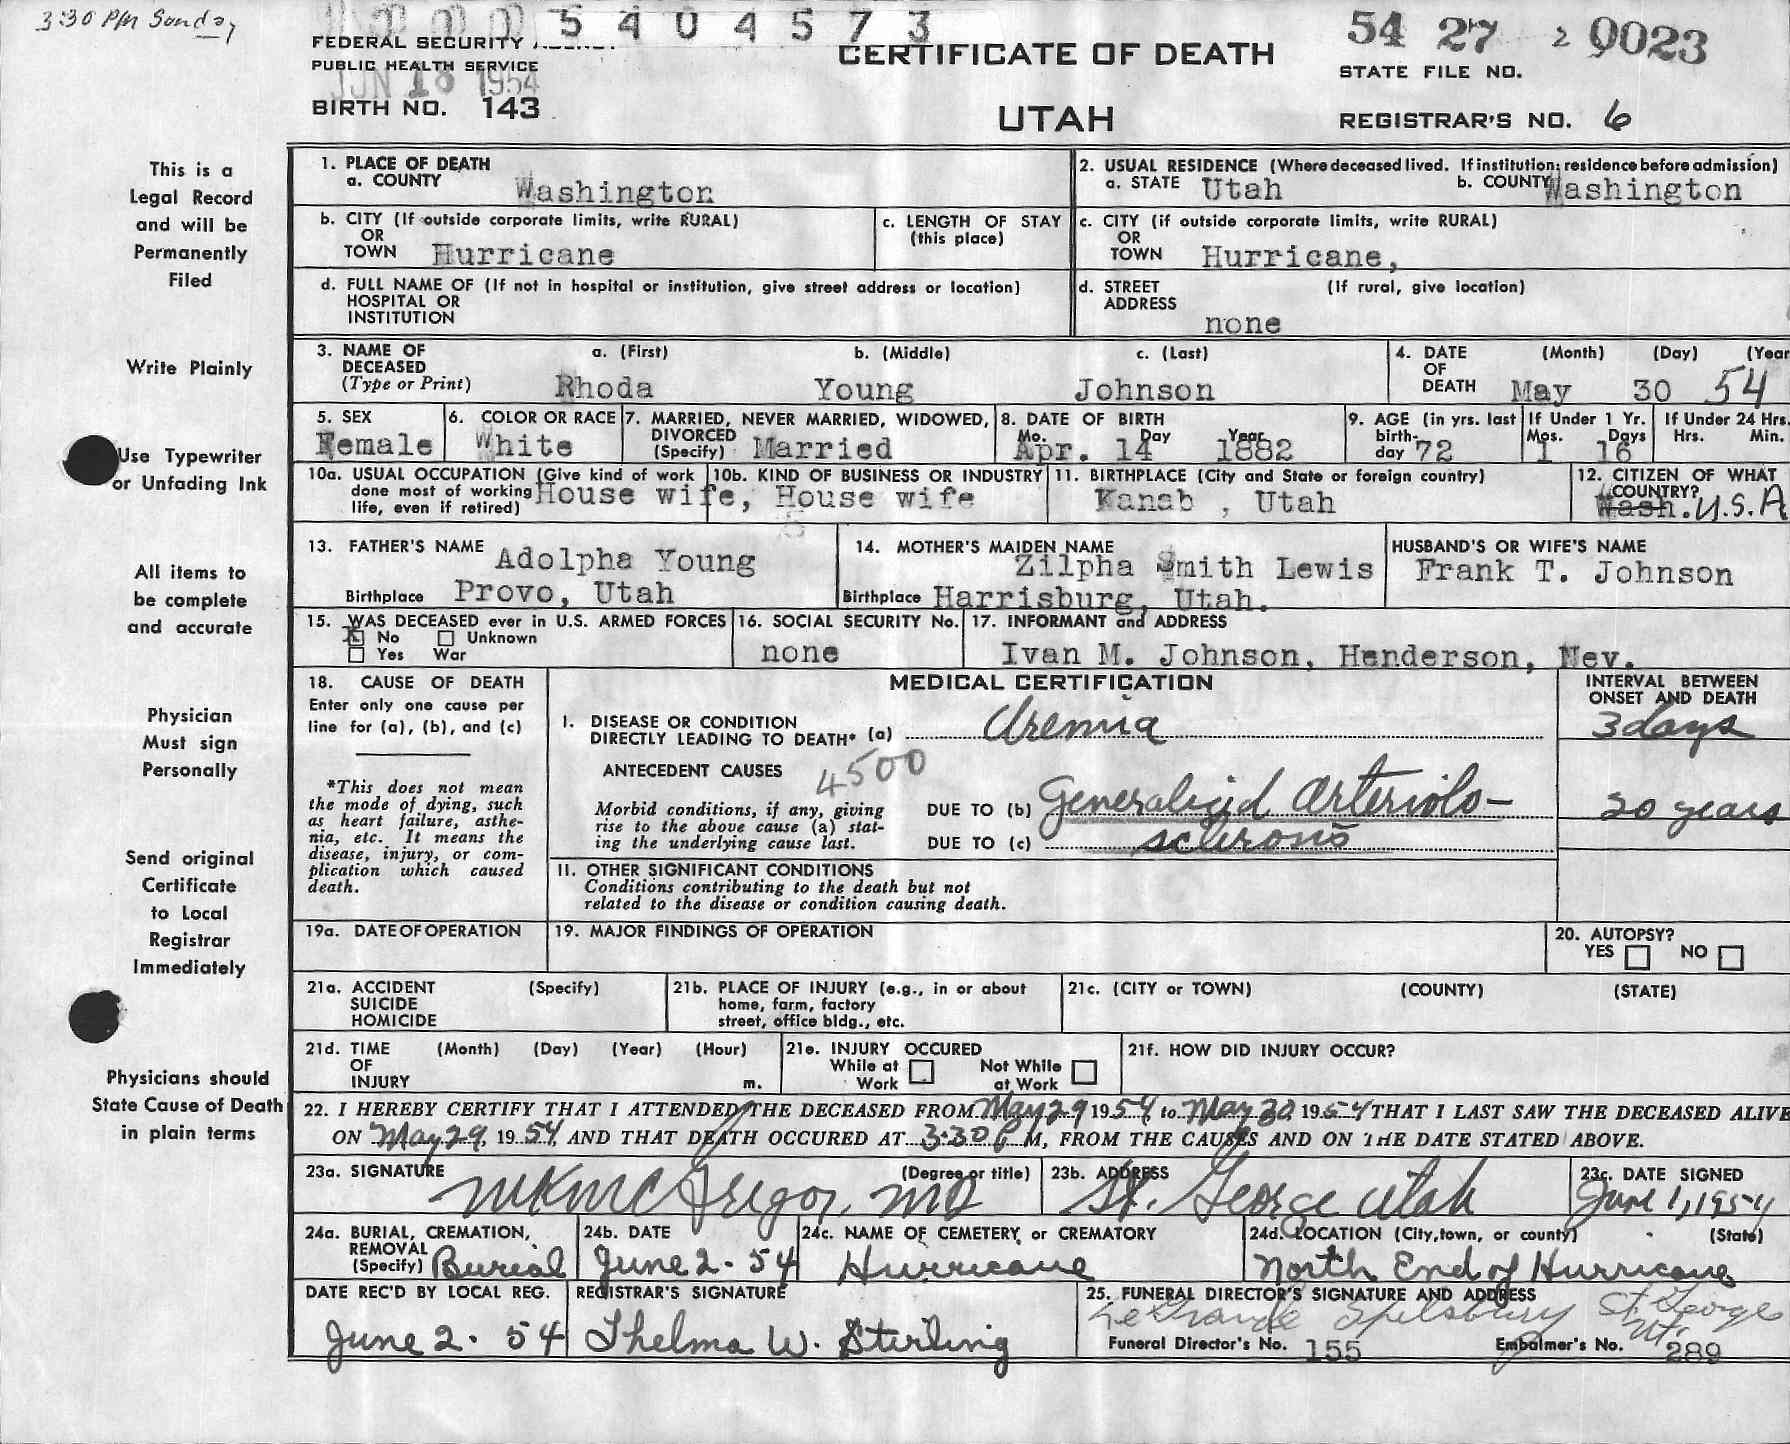 3:30 PM Sunday
5 4 0 4 5 7 3
54 27 2 0023
FEDERAL SECURITY
PUBLIC HEALTH SERVICE
JUN 18 1954
BIRTH NO. 143
CERTIFICATE OF DEATH
UTAH
STATE FILE NO.
REGISTRAR'S NO. 6
This is a
Legal Record
and will be
Permanently
Filed
Write Plainly
Use Typewriter
or Unfading Ink
All items to
be complete
and accurate
Physician
Must sign
Personally
Send original
Certificate
to Local
Registrar
Immediately
Physicians should
State Cause of Death
in plain terms
1. PLACE OF DEATH
a. COUNTY Washington
2. USUAL RESIDENCE (Where deceased lived. If institution: residence before admission)
a. STATE Utah b. COUNTY Washington
b. CITY (If outside corporate limits, write RURAL)
OR
TOWN Hurricane
c. LENGTH OF STAY
(this place)
c. CITY (if outside corporate limits, write RURAL)
OR
TOWN Hurricane,
d. FULL NAME OF (If not in hospital or institution, give street address or location)
HOSPITAL OR
INSTITUTION
d. STREET (If rural, give location)
ADDRESS
none
3. NAME OF DECEASED a. (First) b. (Middle) c. (Last)
(Type or Print) Rhoda Young Johnson
4. DATE (Month) (Day) (Year
OF
DEATH May 30 54
5. SEX
Female
6. COLOR OR RACE
White
7. MARRIED, NEVER MARRIED, WIDOWED,
DIVORCED
(Specify) Married
8. DATE OF BIRTH
Mo. Day Year
Apr. 14 1882
9. AGE (in yrs. last
birth-
day 72
If Under 1 Yr.
Mos. Days
1 16
If Under 24 Hrs.
Hrs. Min.
10a. USUAL OCCUPATION (Give kind of work
done most of working
life, even if retired) House wife,
10b. KIND OF BUSINESS OR INDUSTRY
House wife
11. BIRTHPLACE (City and State or foreign country)
Kanab , Utah
12. CITIZEN OF WHAT
COUNTRY?
Wash. U.S.A
13. FATHER'S NAME Adolpha Young
Birthplace Provo, Utah
14. MOTHER'S MAIDEN NAME
Zilpha Smith Lewis
Birthplace Harrisburg, Utah.
HUSBAND'S OR WIFE'S NAME
Frank T. Johnson
15. WAS DECEASED ever in U.S. ARMED FORCES
No Unknown
Yes War
16. SOCIAL SECURITY No.
none
17. INFORMANT and ADDRESS
Ivan M. Johnson, Henderson, Nev.
18. CAUSE OF DEATH
Enter only one cause per
line for (a), (b), and (c)
*This does not mean
the mode of dying, such
as heart failure, asthe-
nia, etc. It means the
disease, injury, or com-
plication which caused
death.
MEDICAL CERTIFICATION
INTERVAL BETWEEN
ONSET AND DEATH
I. DISEASE OR CONDITION
DIRECTLY LEADING TO DEATH* (a) Uremia 3 days
ANTECEDENT CAUSES 4500
Morbid conditions, if any, giving
rise to the above cause (a) stat-
ing the underlying cause last.
DUE TO (b) Generalized arteriolo- 20 years
DUE TO (c) sclerosis
11. OTHER SIGNIFICANT CONDITIONS
Conditions contributing to the death but not
related to the disease or condition causing death.
19a. DATE OF OPERATION
19. MAJOR FINDINGS OF OPERATION
20. AUTOPSY?
YES NO
21a. ACCIDENT (Specify)
SUICIDE
HOMICIDE
21b. PLACE OF INJURY (e.g., in or about
home, farm, factory
street, office bldg., etc.
21c. (CITY or TOWN) (COUNTY) (STATE)
21d. TIME (Month) (Day) (Year) (Hour)
OF
INJURY m.
21e. INJURY OCCURED
While at Work Not While at Work
21f. HOW DID INJURY OCCUR?
22. I HEREBY CERTIFY THAT I ATTENDED THE DECEASED FROM May 29 1954 to May 30 1954 THAT I LAST SAW THE DECEASED ALIVE
ON May 29, 1954, AND THAT DEATH OCCURED AT 3:30 P M, FROM THE CAUSES AND ON THE DATE STATED ABOVE.
23a. SIGNATURE (Degree or title)
MKMcGregor, MD
23b. ADDRESS
St. George Utah
23c. DATE SIGNED
June 1, 1954
24a. BURIAL, CREMATION,
REMOVAL
(Specify) Burial
24b. DATE
June 2 - 54
24c. NAME OF CEMETERY or CREMATORY
Hurricane
24d. LOCATION (City, town, or county) (State)
North End of Hurricane
DATE REC'D BY LOCAL REG.
June 2 - 54
REGISTRAR'S SIGNATURE
Thelma W. Sterling
25. FUNERAL DIRECTOR'S SIGNATURE AND ADDRESS
Spilsbury St. George
Ut.
Funeral Director's No. 155 Embalmer's No. 289